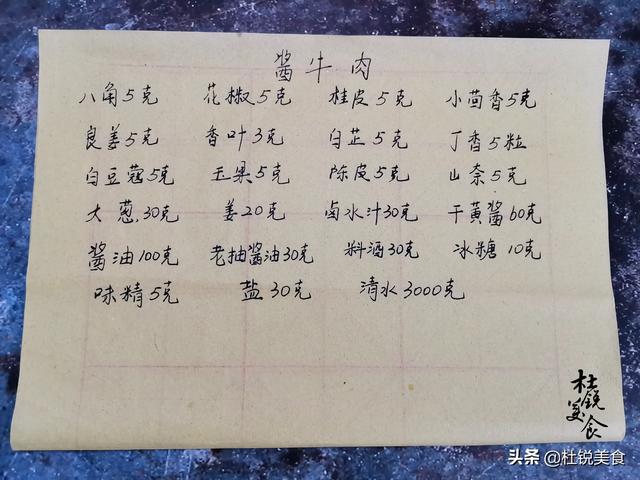 酱牛肉
八角5克 花椒5克 桂皮5克 小茴香5克
良姜5克 香叶3克 白芷5克 丁香5粒
白豆蔻5克 玉果5克 陈皮5克 山奈5克
大葱30克 姜20克 卤水汁30克 干黄酱60克
酱油100克 老抽酱油30克 料酒30克 冰糖10克
味精5克 盐30克 清水3000克
杜锐美食
头条 @杜锐美食